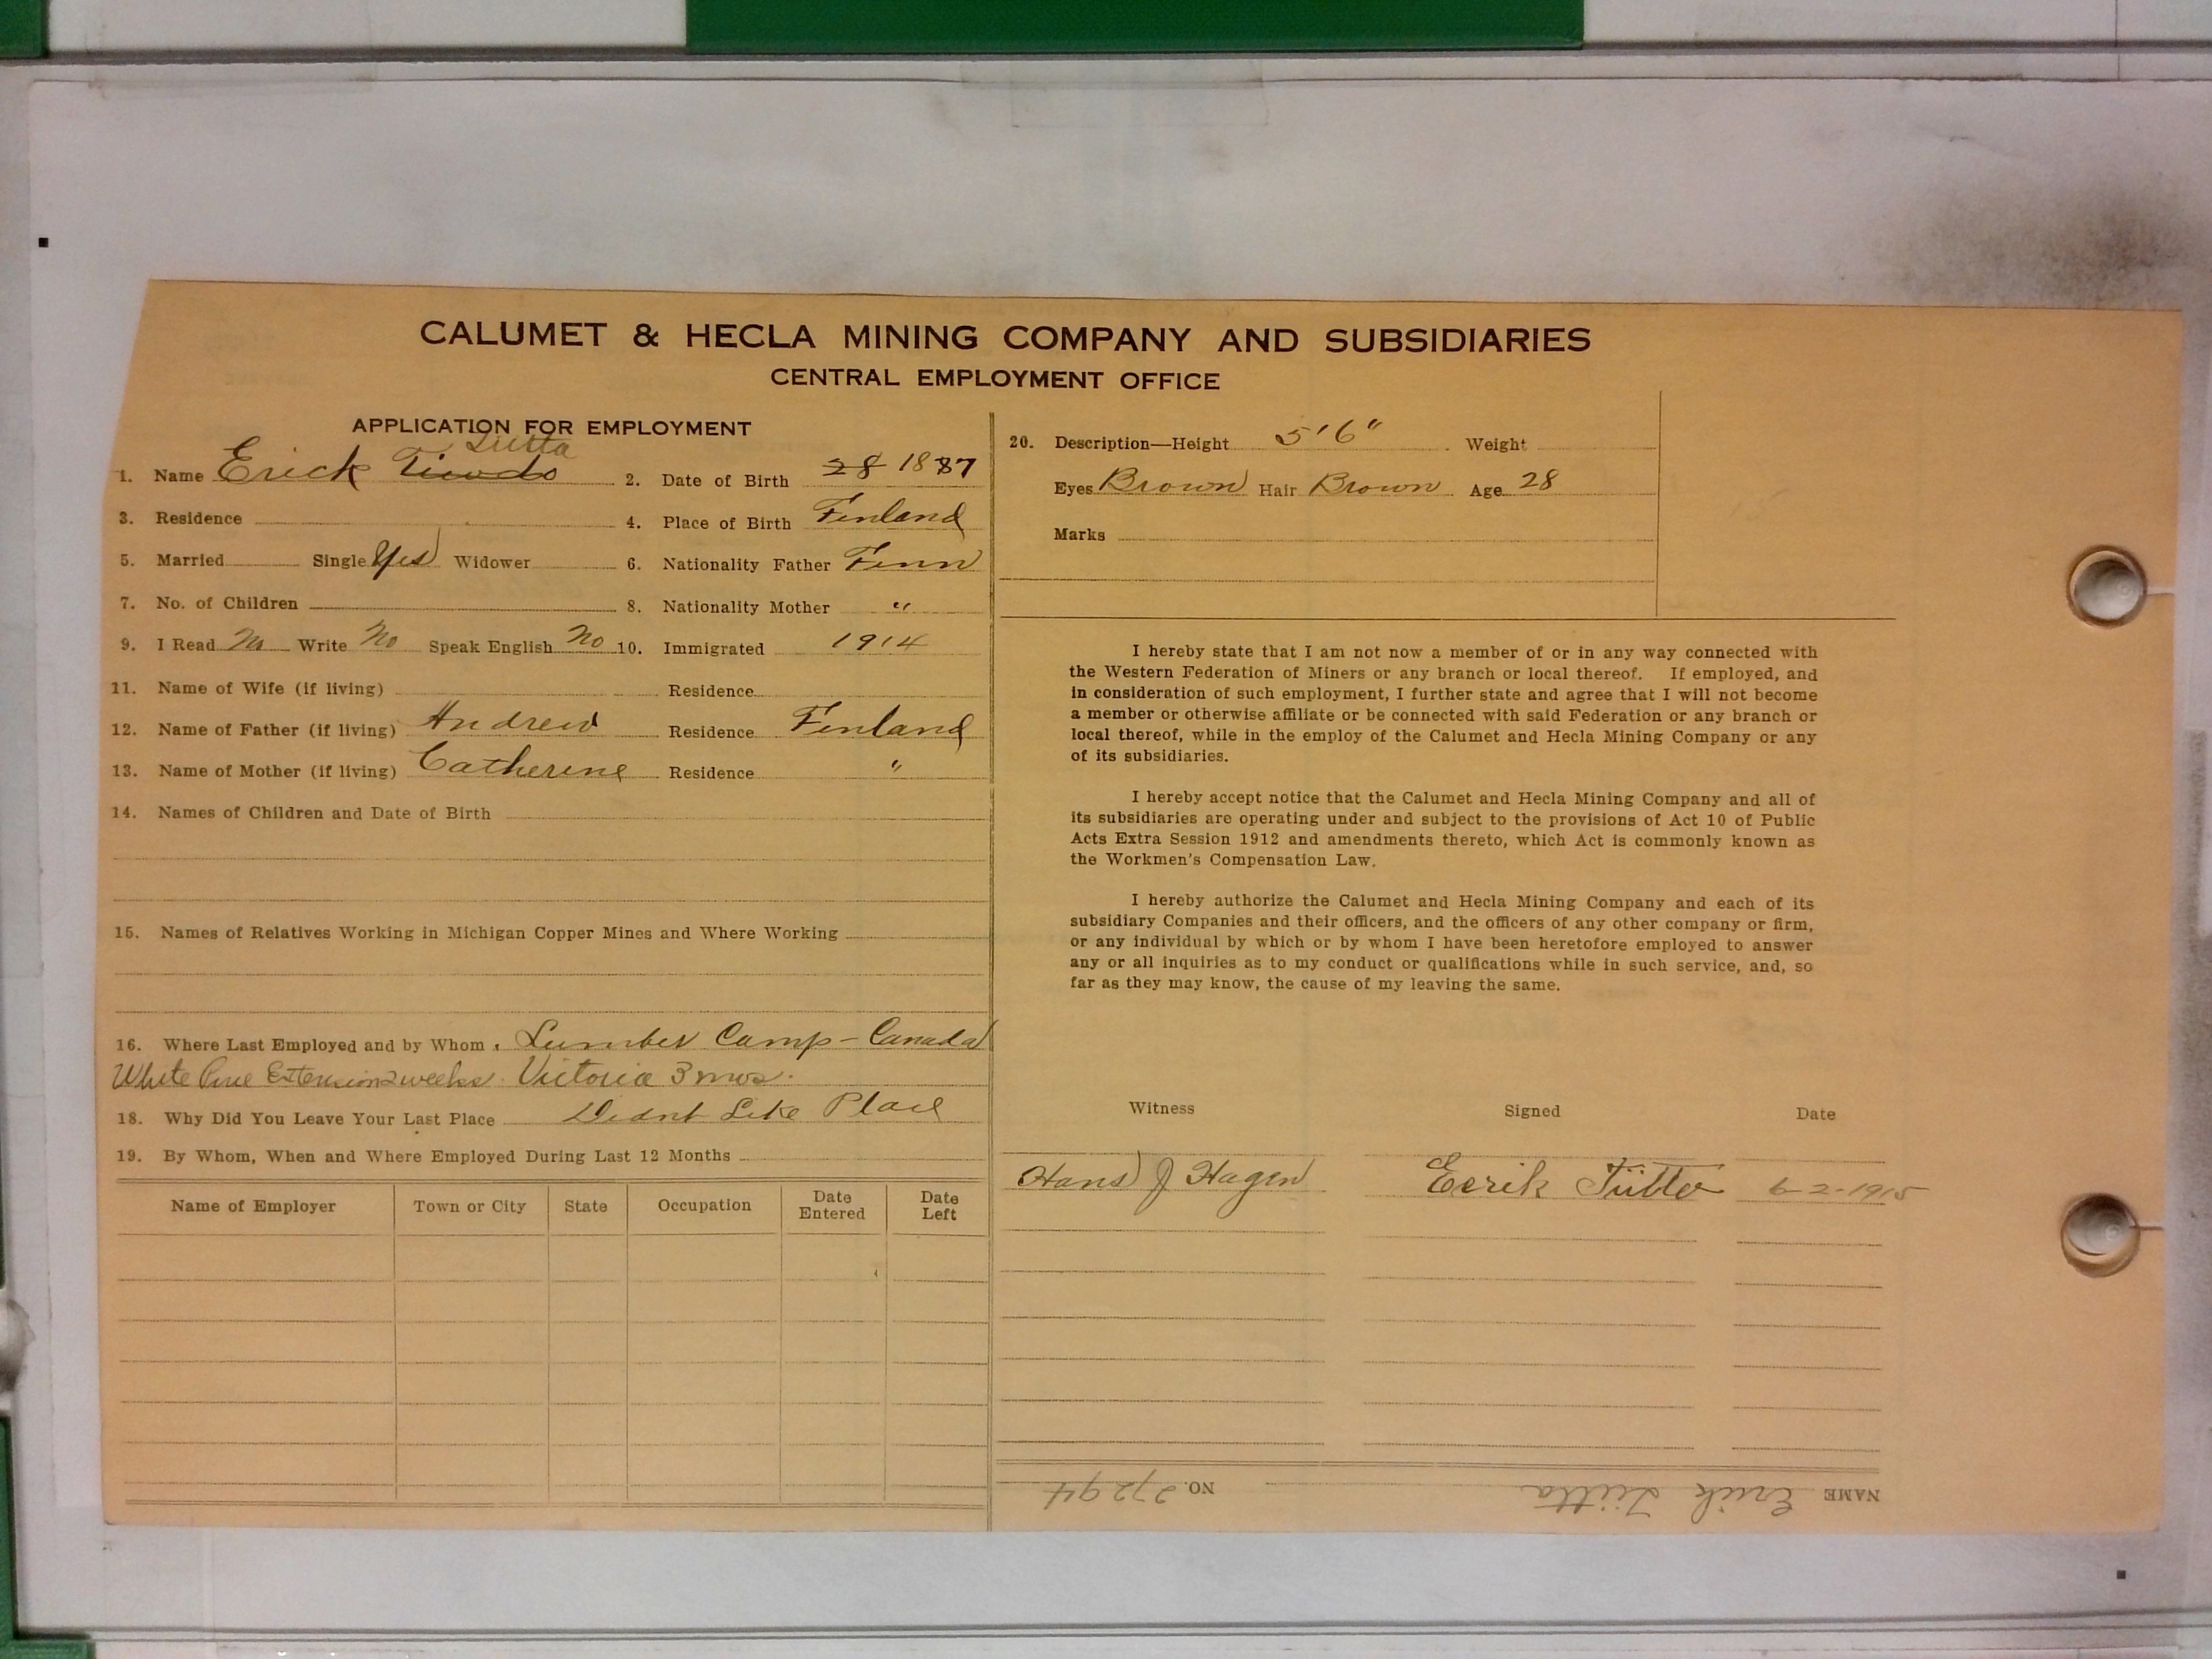 CALUMET & HECLA MINING COMPANY AND SUBSIDIARIES
CENTRAL EMPLOYMENT OFFICE
APPLICATION FOR EMPLOYMENT
Tiitta
1. Name Erick 2. Date of Birth 28 1887
3. Residence 4. Place of Birth Finland
5. Married Single Yes Widower 6. Nationality Father Finn
7. No. of Children 8. Nationality Mother "
9. I Read No Write No Speak English No 10. Immigrated 1914
11. Name of Wife (if living) Residence
12. Name of Father (if living) Andrew Residence Finland
13. Name of Mother (if living) Catherine Residence "
14. Names of Children and Date of Birth
15. Names of Relatives Working in Michigan Copper Mines and Where Working
16. Where Last Employed and by Whom Lumber Camp - Canada
White Pine Extension 2 weeks. Victoria 3 mos.
18. Why Did You Leave Your Last Place Didnt Like Place
19. By Whom, When and Where Employed During Last 12 Months
Name of Employer Town or City State Occupation Date Entered Date Left
20. Description—Height 5'6" Weight
Eyes Brown Hair Brown Age 28
Marks
I hereby state that I am not now a member of or in any way connected with
the Western Federation of Miners or any branch or local thereof. If employed, and
in consideration of such employment, I further state and agree that I will not become
a member or otherwise affiliate or be connected with said Federation or any branch or
local thereof, while in the employ of the Calumet and Hecla Mining Company or any
of its subsidiaries.
I hereby accept notice that the Calumet and Hecla Mining Company and all of
its subsidiaries are operating under and subject to the provisions of Act 10 of Public
Acts Extra Session 1912 and amendments thereto, which Act is commonly known as
the Workmen's Compensation Law.
I hereby authorize the Calumet and Hecla Mining Company and each of its
subsidiary Companies and their officers, and the officers of any other company or firm,
or any individual by which or by whom I have been heretofore employed to answer
any or all inquiries as to my conduct or qualifications while in such service, and, so
far as they may know, the cause of my leaving the same.
Witness Signed Date
Hans J Hagen Eerik Tiitto 6-2-1915
NAME Erick Tiitta NO. 27294